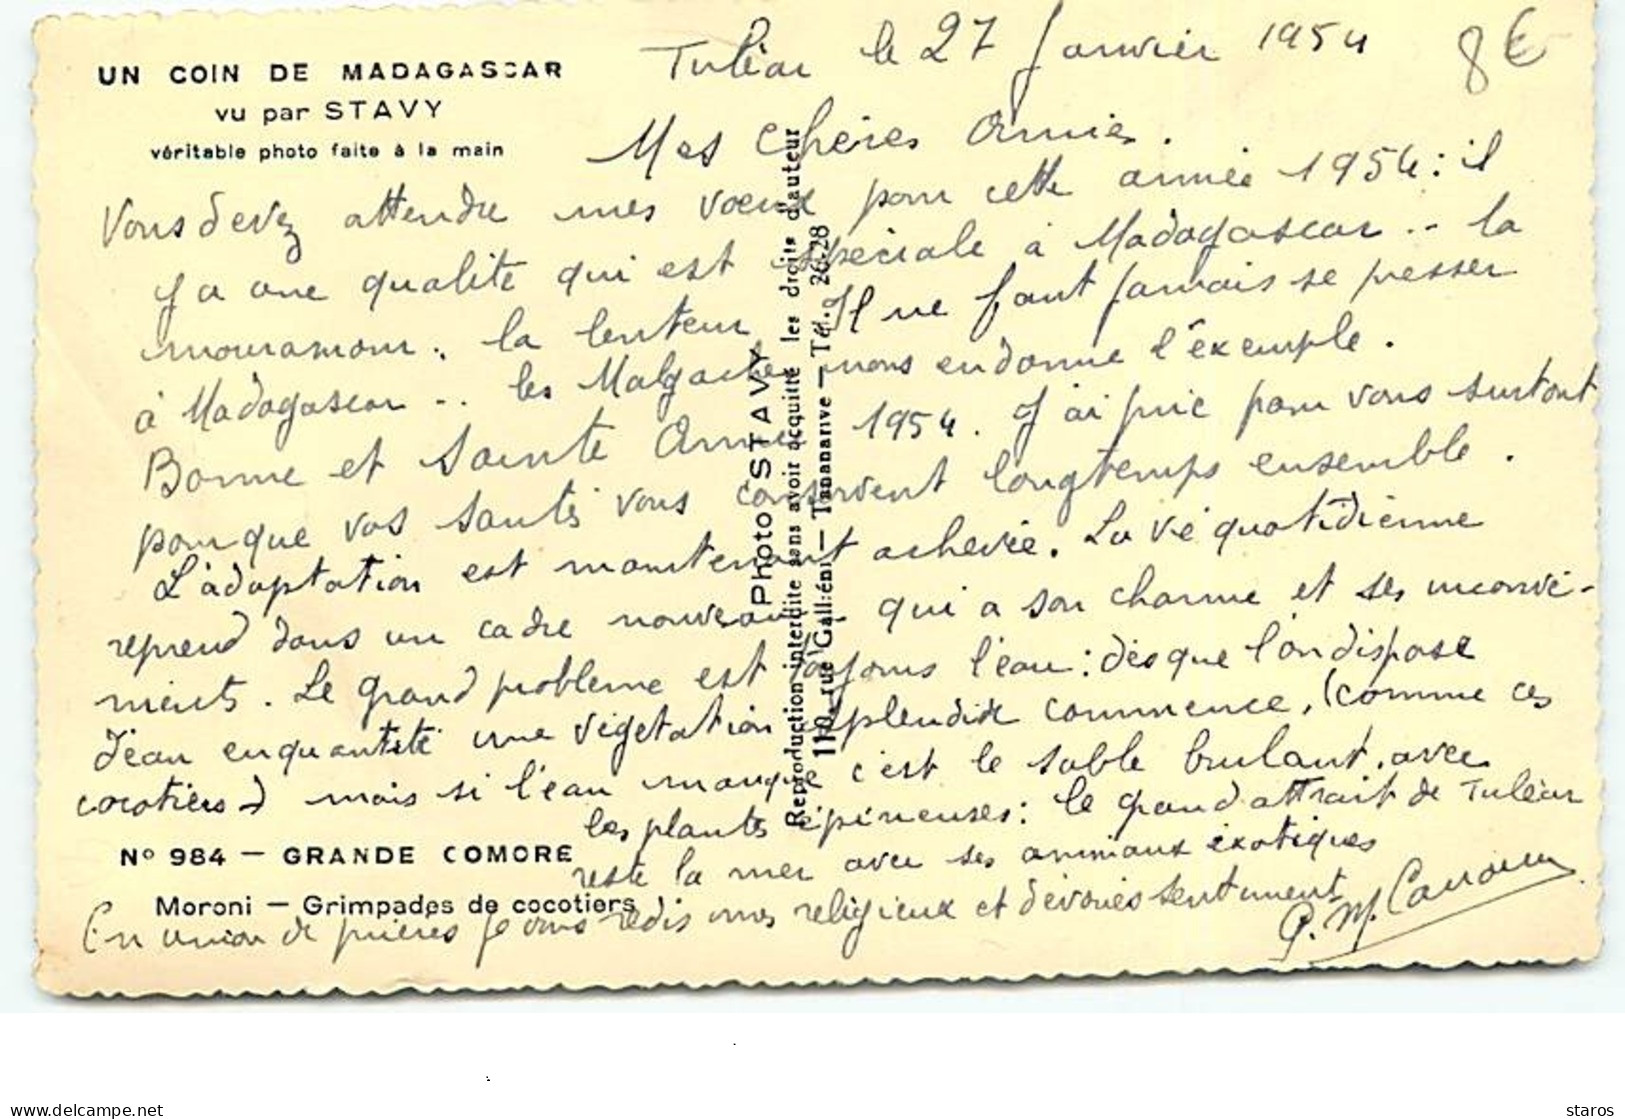 UN COIN DE MADAGASCAR
vu par STAVY
véritable photo faite à la main
Tuléar le 27 Janvier 1954
8€
Mes chères Amies.
Vous devez attendre mes voeux pour cette année 1954 : il
y a une qualité qui est spéciale à Madagascar .. la
mouramour. la lenteur Il ne faut jamais se presser
à Madagascar .. les Malgaches nous en donne l'exemple.
Bonne et Sainte Année 1954. J'ai prié pour vous surtout
pour que vos santés vous conservent longtemps ensemble.
L'adaptation est maintenant achevée. La vie quotidienne
reprend dans un cadre nouveau - qui a son charme et ses inconvé-
nients. Le grand problème est toujours l'eau : dès que l'on dispose
d'eau en quantité une végétation splendide commence, (comme ces
cocotiers) mais si l'eau manque c'est le sable brulant, avec
les plantes épineuses : le grand attrait de Tuléar
reste la mer avec ses animaux exotiques
En union de prières je vous redis mes religieux et dévoués sentiment
P. M.
N° 984 — GRANDE COMORE
Moroni — Grimpades de cocotiers
Photo STAVY
Reproduction interdite sans avoir acquitté les droits d'auteur
110, rue Galliéni — Tananarive — Tél. 26-28
www.delcampe.net
staros